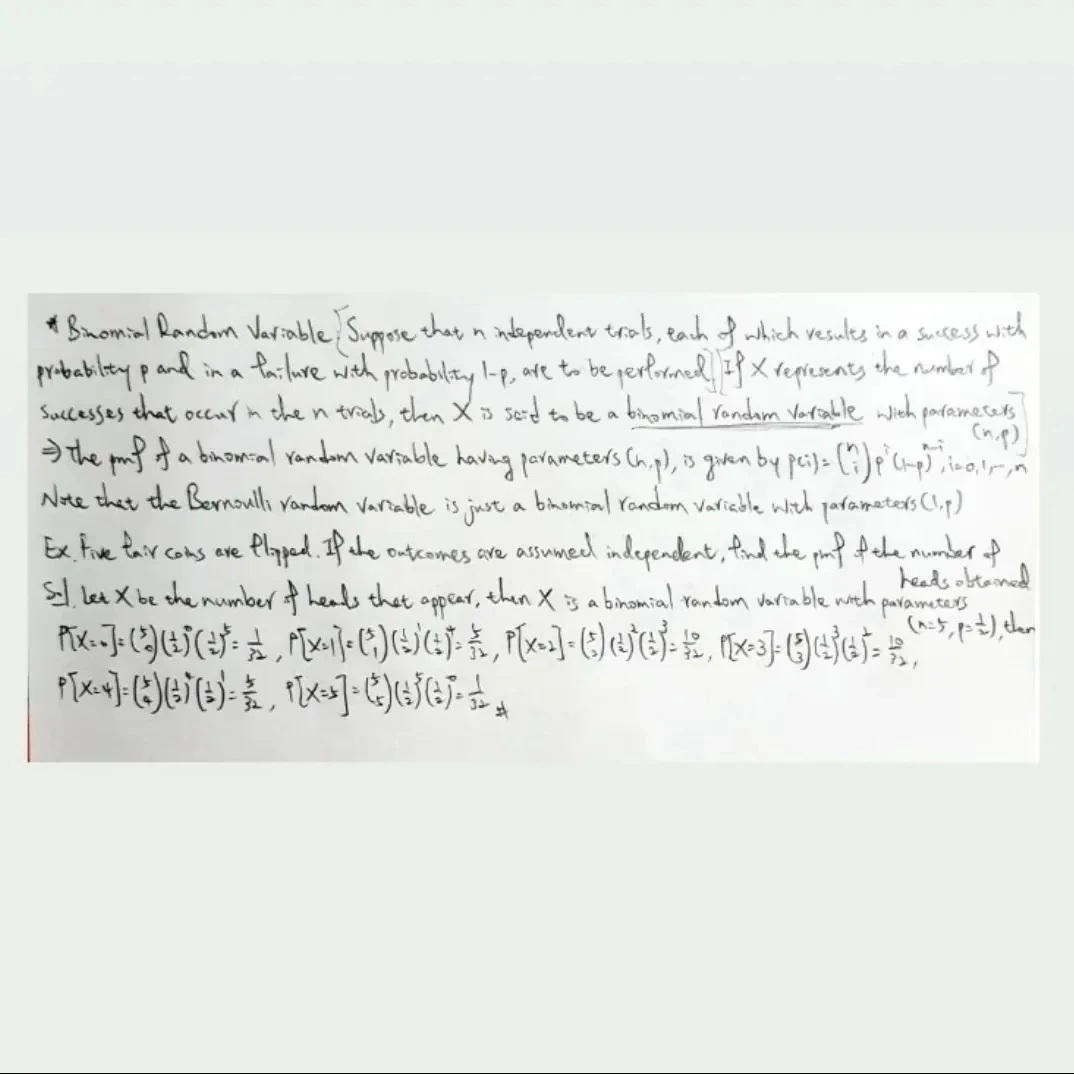 * Binomial Random Variable: [Suppose that n independent trials, each of which results in a success with
probability p and in a failure with probability 1-p, are to be performed] [If X represents the number of
successes that occur in the n trials, then X is said to be a binomial random variable with parameters
(n,p)]
⇒ The pmf of a binomial random variable having parameters (n,p), is given by p(i) = (n i) p^i (1-p)^{n-i}, i=0,1,…,n
Note that the Bernoulli random variable is just a binomial random variable with parameters (1,p)
Ex. Five fair coins are flipped. If the outcomes are assumed independent, find the pmf of the number of
heads obtained
Sol. Let X be the number of heads that appear, then X is a binomial random variable with parameters
(n=5, p=1/2), then
P[X=0] = (5 0)(1/2)^0(1/2)^5 = 1/32, P[X=1] = (5 1)(1/2)^1(1/2)^4 = 5/32, P[X=2] = (5 2)(1/2)^2(1/2)^3 = 10/32, P[X=3] = (5 3)(1/2)^3(1/2)^2 = 10/32,
P[X=4] = (5 4)(1/2)^4(1/2)^1 = 5/32, P[X=5] = (5 5)(1/2)^5(1/2)^0 = 1/32 #